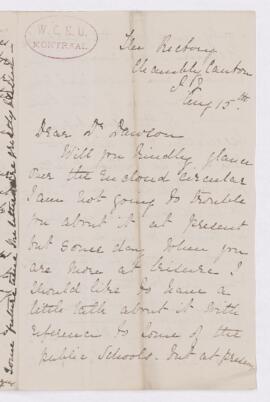 W. C. N. U.
MONTREAL
The Rectory
Chambly Canton
P.Q.
Aug 15th
Dear Dr Dawson
Will you kindly glance
over the enclosed circular
I am not going to trouble
you about it at present
but some day when you
are more at leisure I
should like to have a
little talk about it with
reference to some of the
public schools. But at present
some future time the letters are